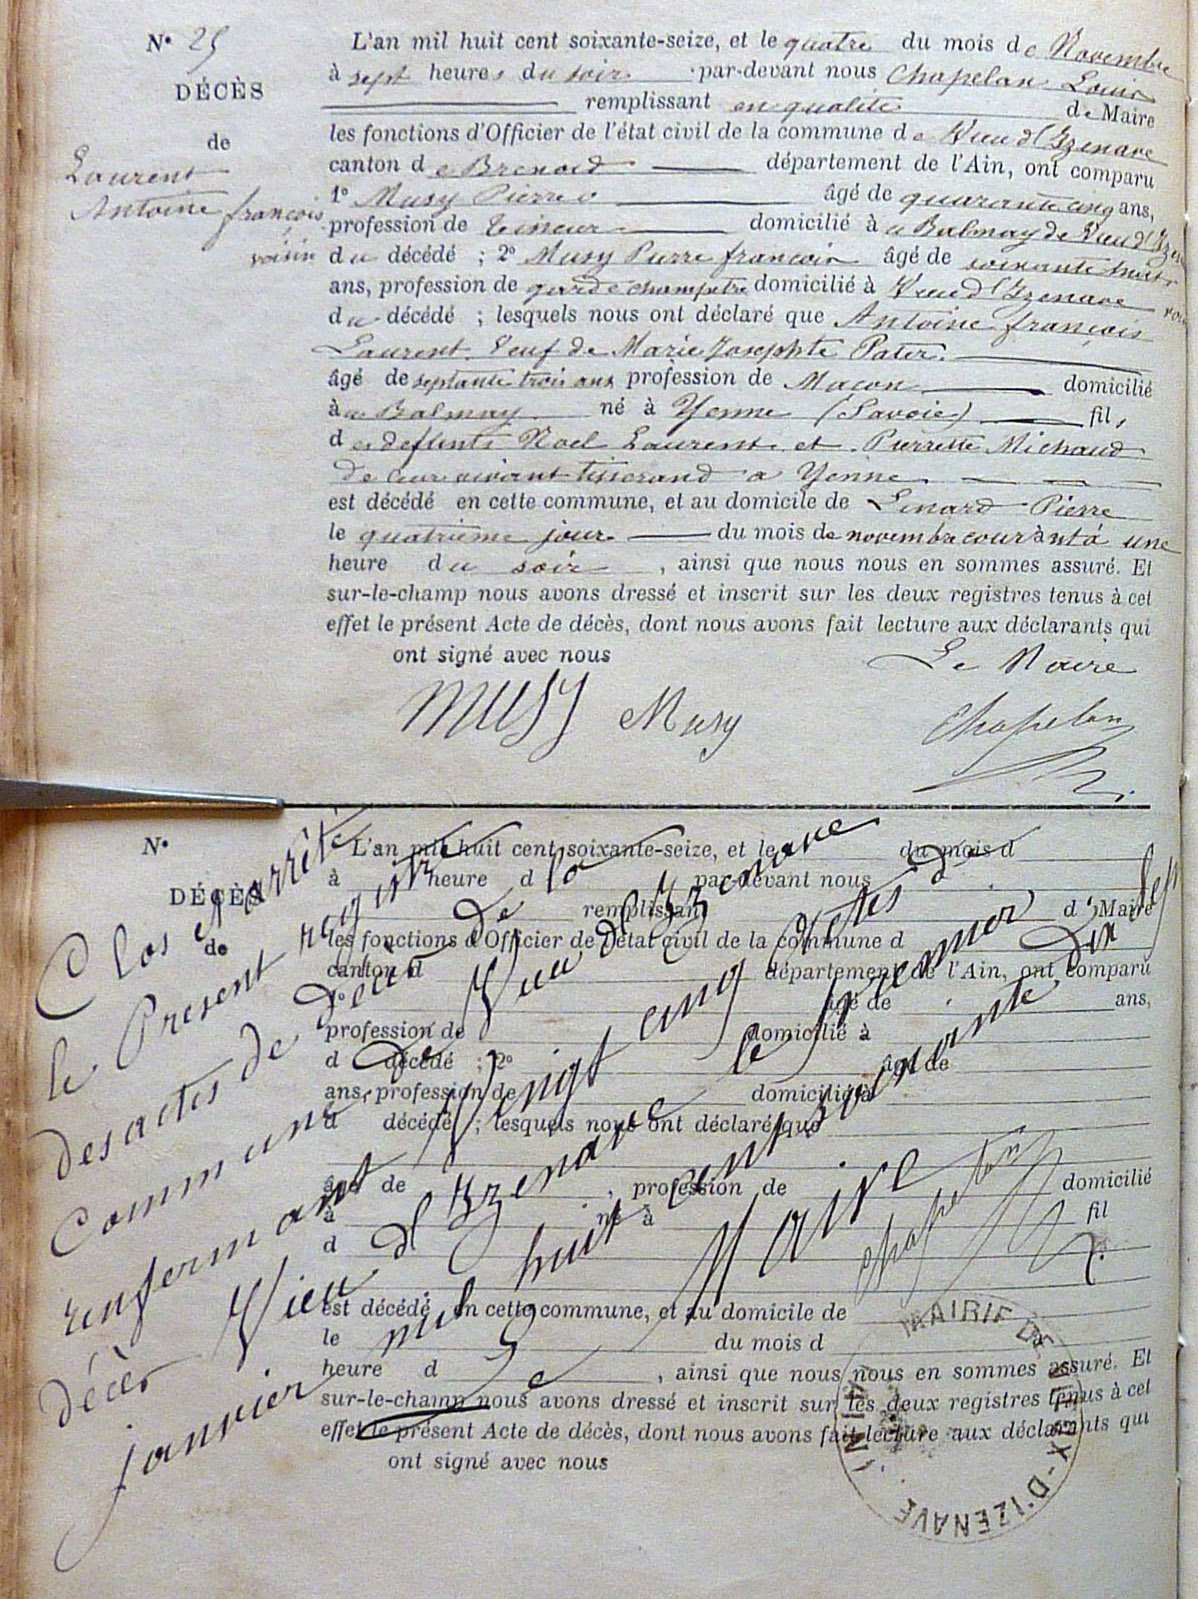 N° 25
DÉCÈS
de
Laurent
Antoine françois
L'an mil huit cent soixante-seize, et le quatre du mois de Novembre
à sept heures du soir par-devant nous Chapelan Louis
remplissant en qualité de Maire
les fonctions d'Officier de l'état civil de la commune de Vieu d'Izenave
canton de Brenod département de l'Ain, ont comparu
1° Musy Pierre âgé de quarante cinq ans,
profession de domicilié à a Balmay de Vieu d'Izen
voisin du décédé ; 2° Musy Pierre francois âgé de soixante huit
ans, profession de garde champetre domicilié à Vieu d'Izenave
du décédé ; lesquels nous ont déclaré que Antoine françois
Laurent Veuf de Marie Josephte Pater
âgé de septante trois ans profession de Macon domicilié
à a Balmay né à Yenne (Savoie) fils
des defunts Noel Laurent et Pierrette Michaud
de leur vivant tisserand a Yenne
est décédé en cette commune, et au domicile de Lenard Pierre
le quatrième jour du mois de novembre courant à une
heure du soir , ainsi que nous nous en sommes assuré. Et
sur-le-champ nous avons dressé et inscrit sur les deux registres tenus à cet
effet le présent Acte de décès, dont nous avons fait lecture aux déclarants qui
ont signé avec nous
Le Maire
MUSY Musy Chapelan
N°
DÉCÈS
de
L'an mil huit cent soixante-seize, et le du mois d
à heure d par-devant nous
remplissant d Maire
les fonctions d'Officier de l'état civil de la commune d
canton d département de l'Ain, ont comparu
1° âgé de ans,
profession de domicilié à
d décédé ; 2° âgé de
ans, profession de domicilié à
d décédé ; lesquels nous ont déclaré que
âgé de , profession de domicilié
à né à fil
d
est décédé en cette commune, et au domicile de
le du mois d à
heure d , ainsi que nous nous en sommes assuré. Et
sur-le-champ nous avons dressé et inscrit sur les deux registres tenus à cet
effet le présent Acte de décès, dont nous avons fait lecture aux déclarants qui
ont signé avec nous
Clos et arrêté
le Present registre
des actes de Décès de la
Commune de Vieu d'Izenave
renfermant Vingt cinq actes de
décès Vieu d'Izenave le premier
janvier mil huit cent soixante dix sep
Le Maire
Chapelan
MAIRIE DE VIEUX-D'IZENAVE (AIN)